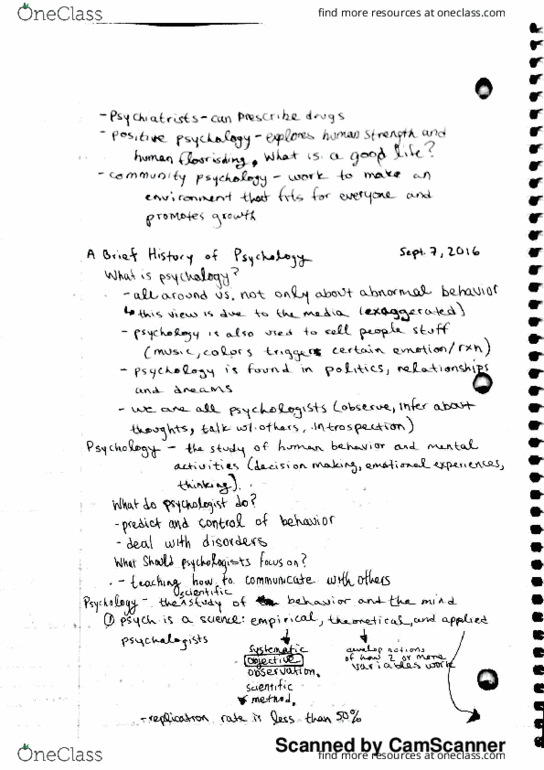 OneClass
find more resources at oneclass.com
- Psychiatrists - can prescribe drugs
- positive psychology - explores human strength and
human flourishing, What is a good life?
- community psychology - work to make an
environment that fits for everyone and
promotes growth
A Brief History of Psychology Sept. 7, 2016
What is psychology?
- all around us. not only about abnormal behavior
↳ this view is due to the media (exaggerated)
- psychology is also used to sell people stuff
(music, colors triggers certain emotion/rxn)
- psychology is found in politics, relationships
and dreams
- we are all psychologists (observe, infer about
thoughts, talk w/ others, introspection)
Psychology - the study of human behavior and mental
activities (decision making, emotional experiences,
thinking).
What do psychologist do?
- predict and control of behavior
- deal with disorders
What should psychologists focus on?
- teaching how to communicate with others
scientific
Psychology - the study of behavior and the mind
① psych is a science: empirical, theoretical, and applied
psychologists
systematic
objective
observation.
scientific
method.
develop notions
of how 2 or more
variables work
- replication rate is less than 50%
Scanned by CamScanner
OneClass
find more resources at oneclass.com